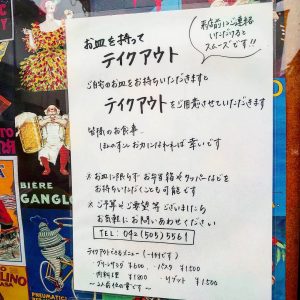 お皿を持って
テイクアウト
来店前にご連絡
いただけると
スムーズです!!
ご自宅のお皿をお持ちいただきますと
テイクアウトをご用意させていただきます
皆様のお食事
ほんの少しお力になれれば幸いです
※お皿に限らずお弁当箱やタッパーなどを
お持ちいただくことも可能です
※ご予算やご要望等ございましたら
お気軽にお問いあわせください
TEL: 042(505)5561
テイクアウトできるメニュー(一例です)
グリーンサラダ ¥600. パスタ ¥1500
肉料理 ¥1800 リゾット ¥1500
〜2人前位の量です〜
BIERE
GANGLO